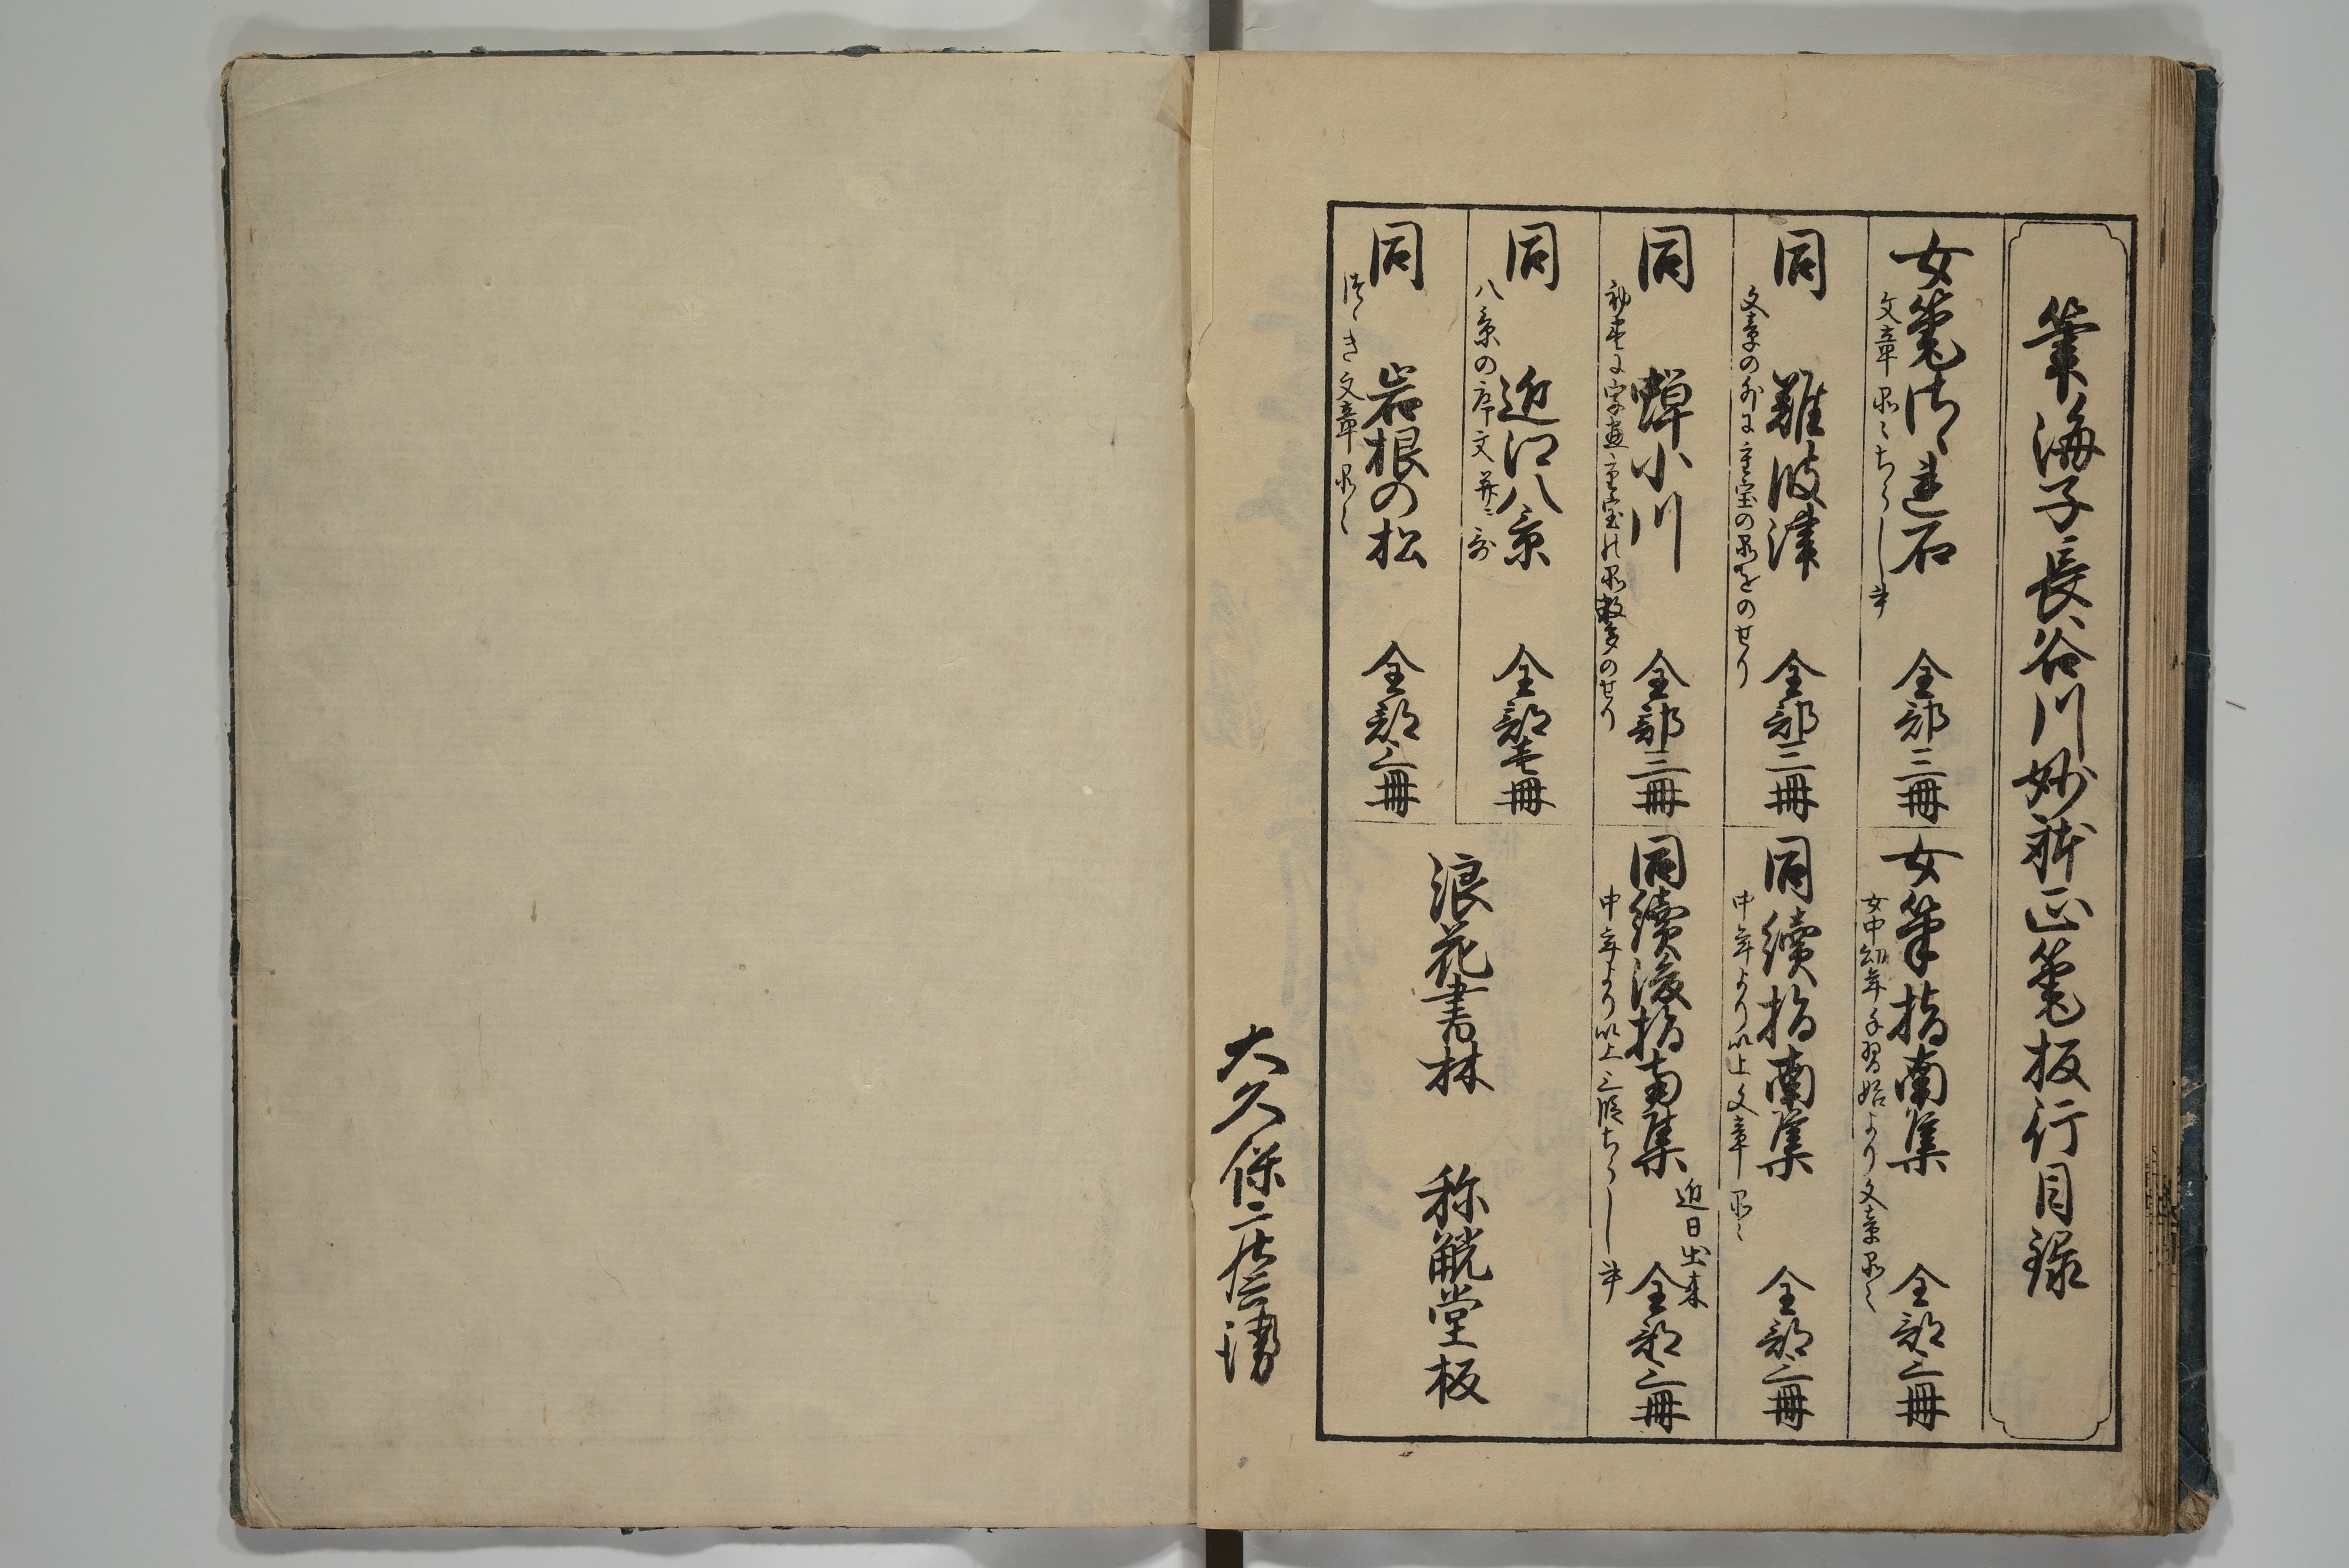 筆海子長谷川妙躰正筆板行目録
女筆さゝれ石 全部三冊
文章品々ちらし書
同 難波津 全部三冊
文章の外に重宝の品をのせり
同 蝉小川 全部三冊
重宝の品数多のせり
同 近江八景 全部壱冊
八景の序文并ニ哥
同 岩根の松 全部三冊
つゝき文章品々
女筆指南集 全部三冊
女中幼年手習始より文章品々
同續指南集 全部三冊
中年より以上文章品々
同續後指南集 近日出来 全部三冊
中年より以上三段ちらし書
浪花書林 称觥堂板
大久保